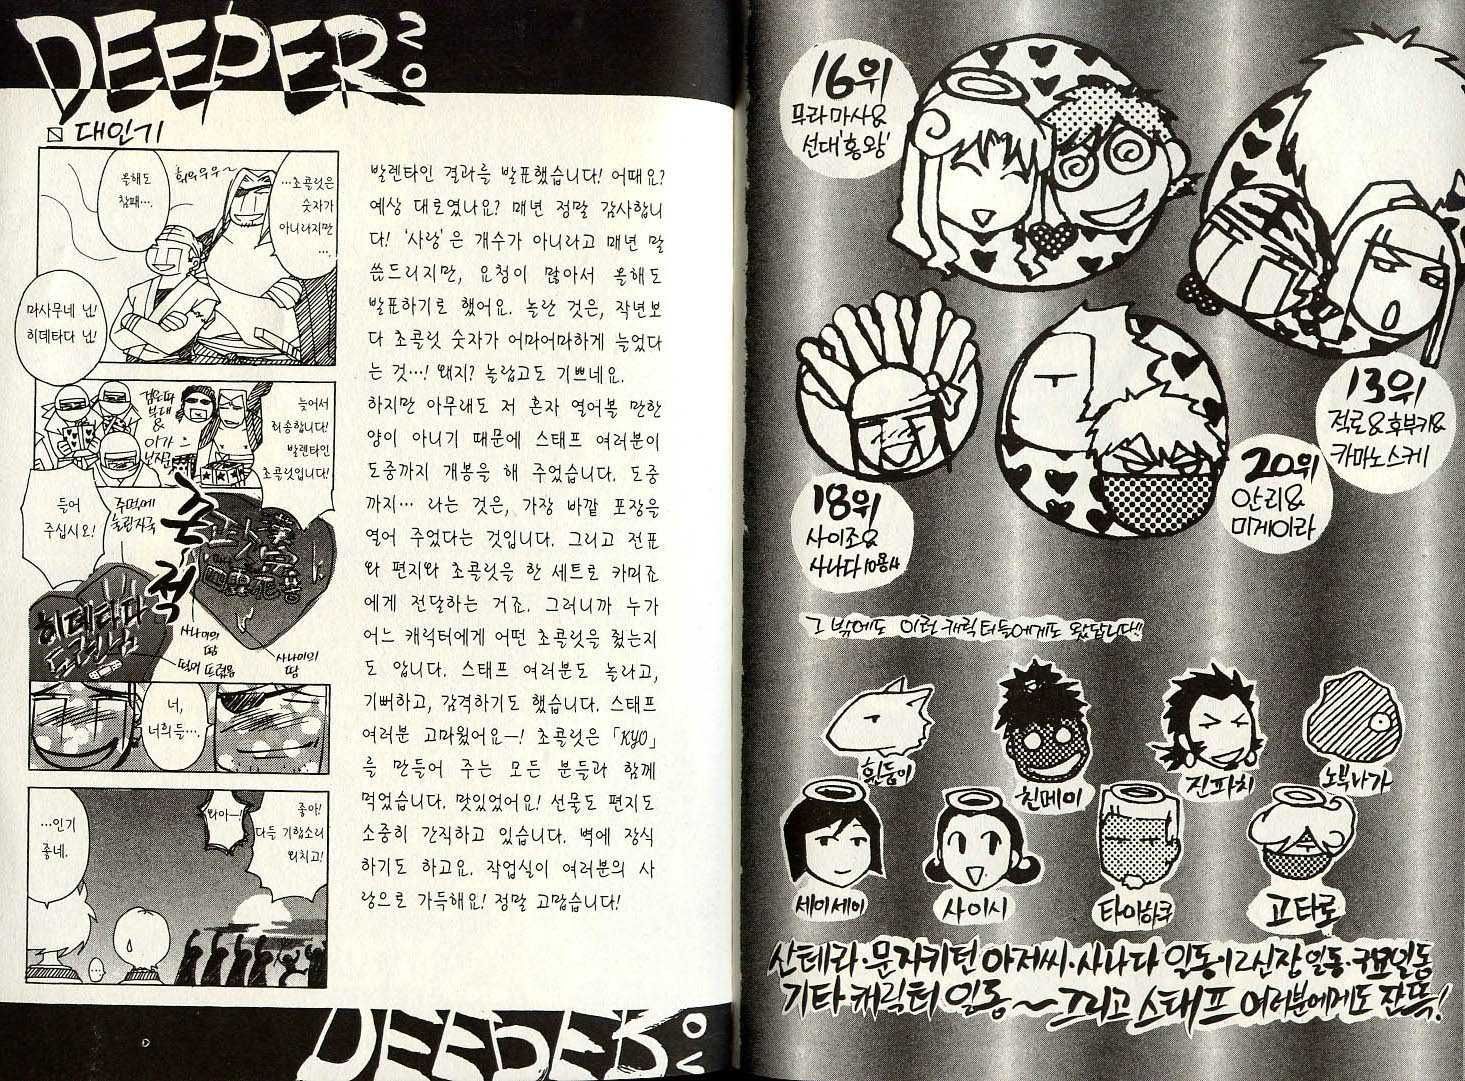 DEEPER
NO
대인기
…초콜릿은
숫자가
아니라지만
….
올해도
참패….
마사무네 님!
히데타다 님!
늦어서
죄송합니다!
발렌타인
초콜릿입니다!
들어
주십시오!
주먹에
눌린자국
히데타다
사나이의
땀
사나이의
땀
너,
너희들….
좋아!
다들 기합소리
외치고!
와아―!
…인기
좋네.
발렌타인 결과를 발표했습니다! 어때요?
예상 대로였나요? 매년 정말 감사합니
다! '사랑'은 개수가 아니라고 매년 말
씀드리지만, 요청이 많아서 올해도
발표하기로 했어요. 놀란 것은, 작년보
다 초콜릿 숫자가 어마어마하게 늘었다
는 것…! 왜지? 놀랍고도 기쁘네요.
하지만 아무래도 저 혼자 열어볼 만한
양이 아니기 때문에 스태프 여러분이
도중까지 개봉을 해 주었습니다. 도중
까지… 라는 것은, 가장 바깥 포장을
열어 주었다는 것입니다. 그리고 전표
와 편지와 초콜릿을 한 세트로 카미죠
에게 전달하는 거죠. 그러니까 누가
어느 캐릭터에게 어떤 초콜릿을 줬는지
도 압니다. 스태프 여러분도 놀라고,
기뻐하고, 감격하기도 했습니다. 스태프
여러분 고마웠어요―! 초콜릿은 「KYO」
를 만들어 주는 모든 분들과 함께
먹었습니다. 맛있었어요! 선물도 편지도
소중히 간직하고 있습니다. 벽에 장식
하기도 하고요. 작업실이 여러분의 사
랑으로 가득해요! 정말 고맙습니다!
16위
무라마사&
선대'홍왕'
13위
적로&후부키&
카마노스케
18위
사이조&
사나다10용사
20위
안리&
미게이라
그 밖에도 이런 캐릭터들에게도 왔답니다!!
흰둥이
친메이
진파치
노부나가
세이세이
사이시
타이하쿠
코타로
산테라·문자키턴 아저씨·사나다 일동·12신장 일동·쿄요일동
기타 캐릭터 일동~그리고 스태프 여러분에게도 잔뜩!